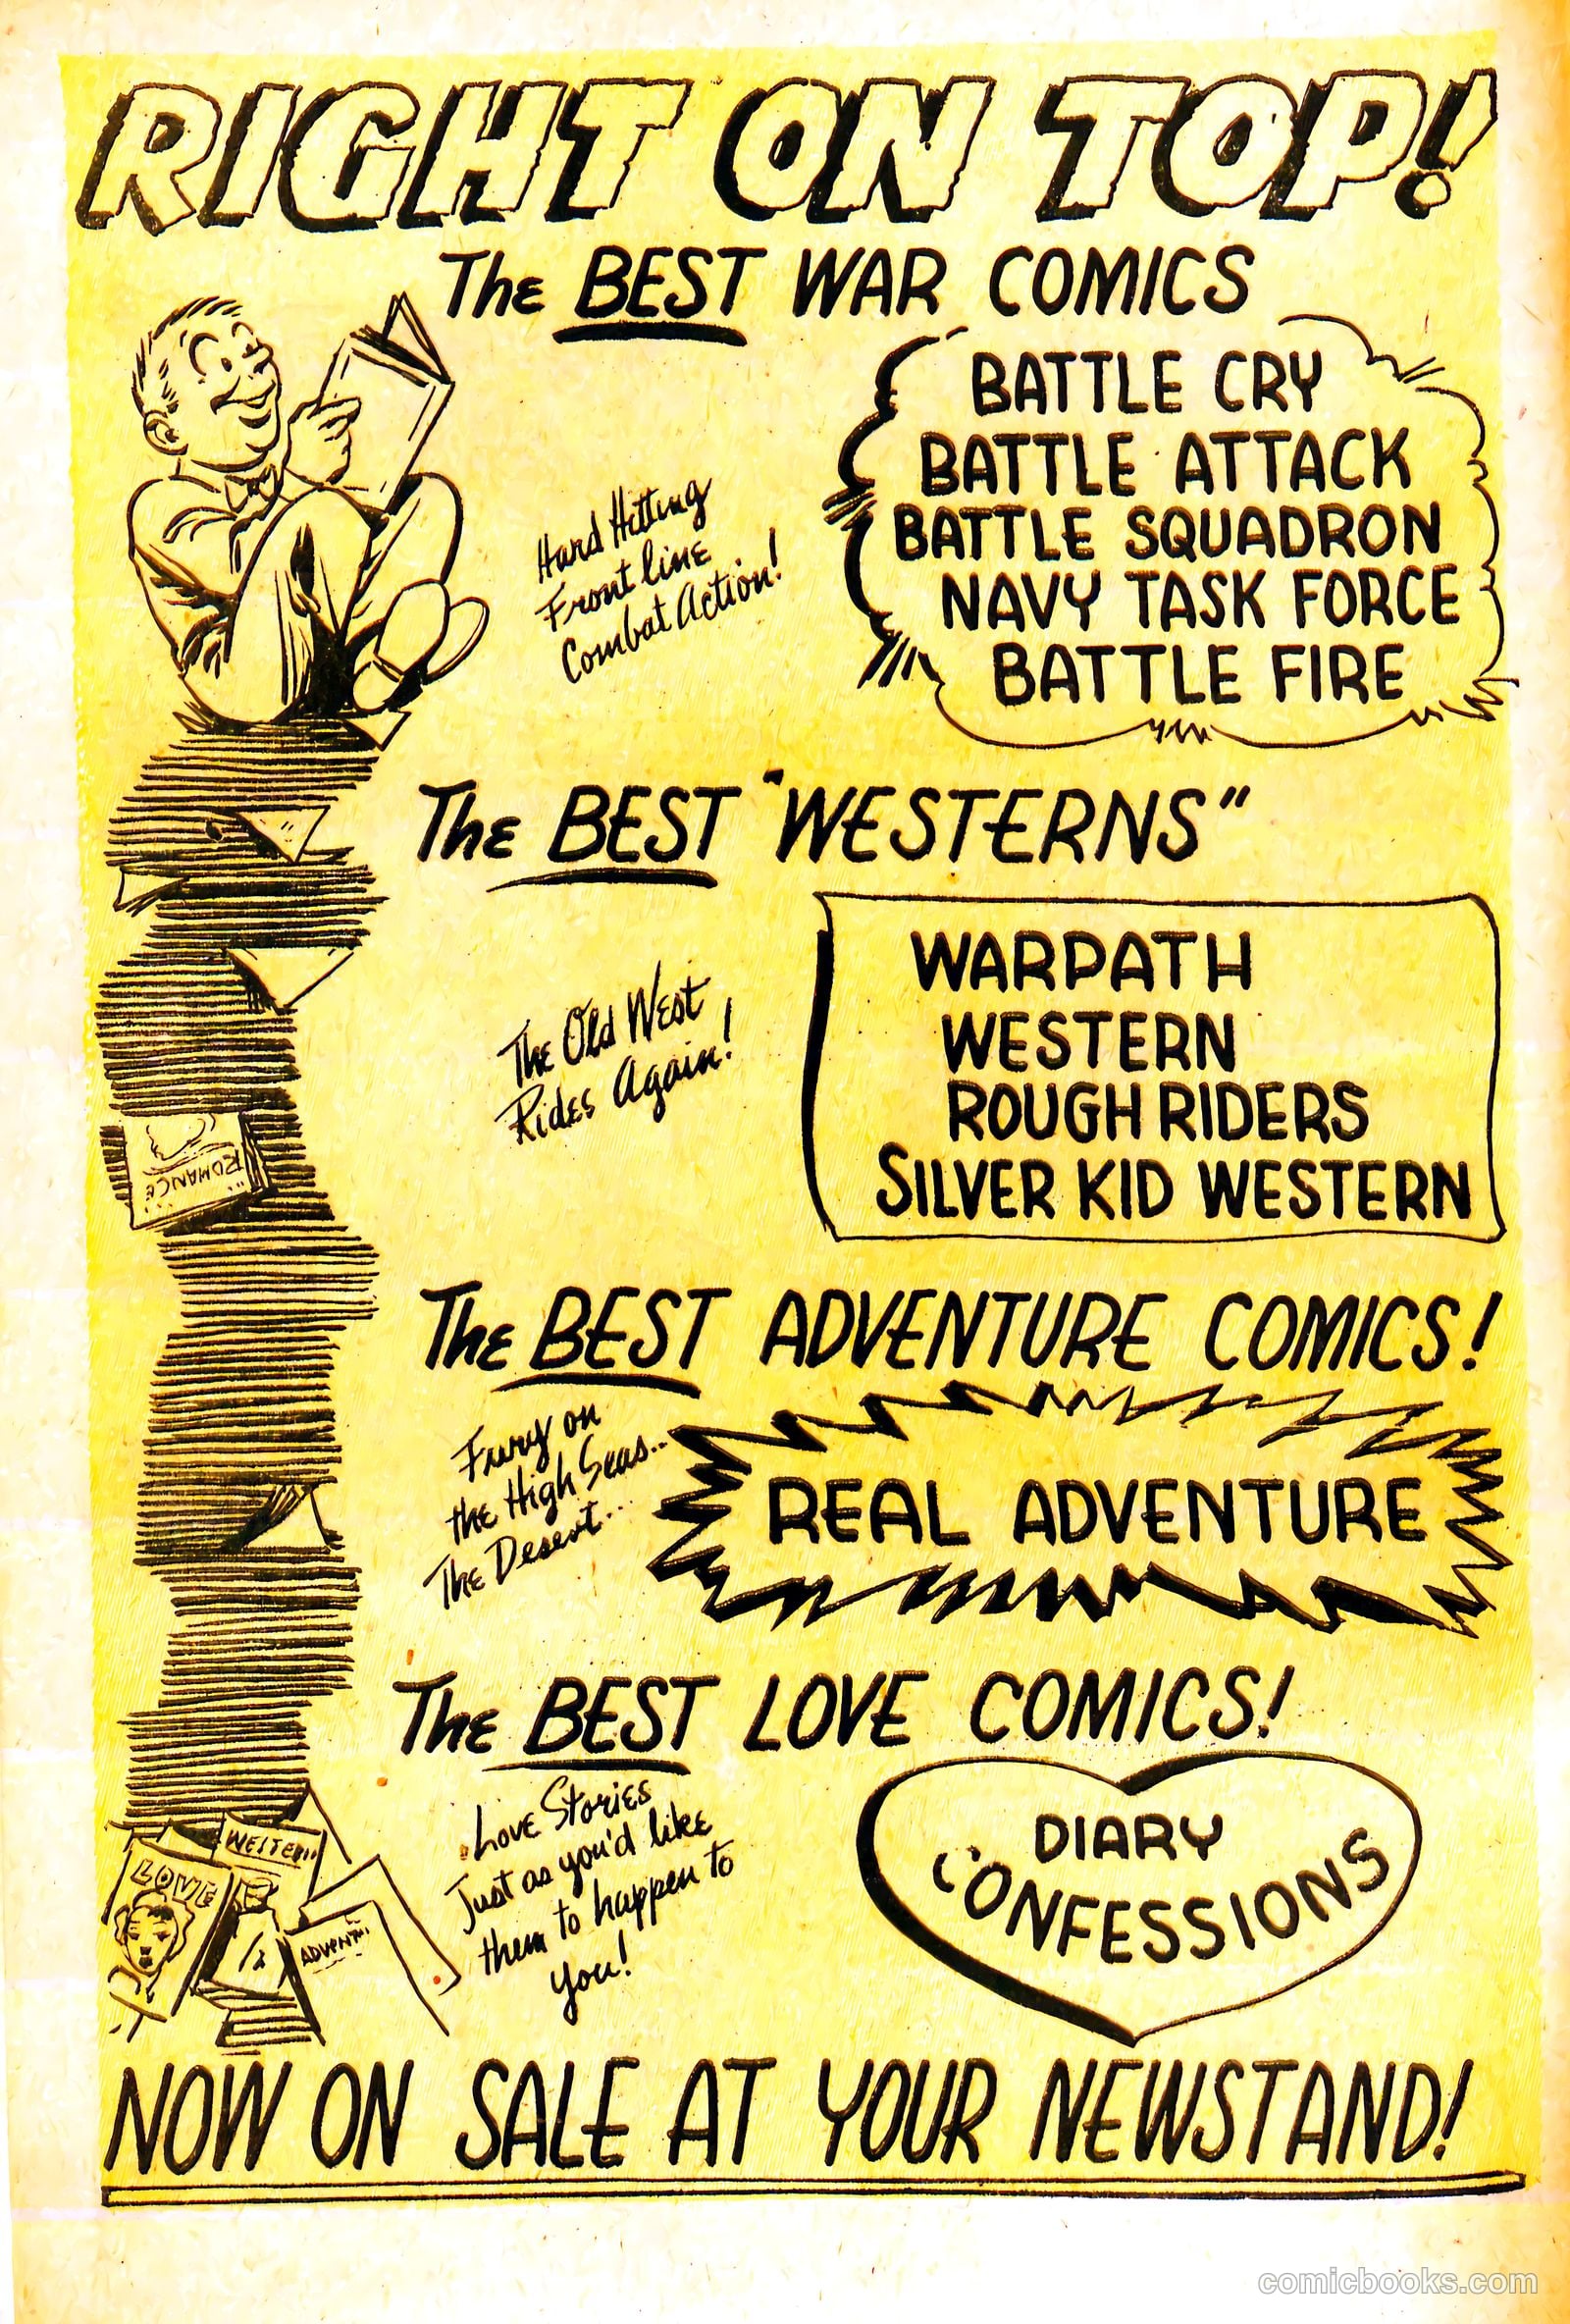 RIGHT ON TOP!
The BEST WAR COMICS
Hard Hitting
Front line
Combat Action!
BATTLE CRY
BATTLE ATTACK
BATTLE SQUADRON
NAVY TASK FORCE
BATTLE FIRE
The BEST "WESTERNS"
The Old West
Rides Again!
WARPATH
WESTERN
ROUGH RIDERS
SILVER KID WESTERN
ROMANCE
The BEST ADVENTURE COMICS!
Fury on
the High Seas..
The Desert...
REAL ADVENTURE
The BEST LOVE COMICS!
Love Stories
Just as you'd like
them to happen to
you!
DIARY
CONFESSIONS
WESTERN
LOVE
ADVENT
NOW ON SALE AT YOUR NEWSTAND!
comicbooks.com